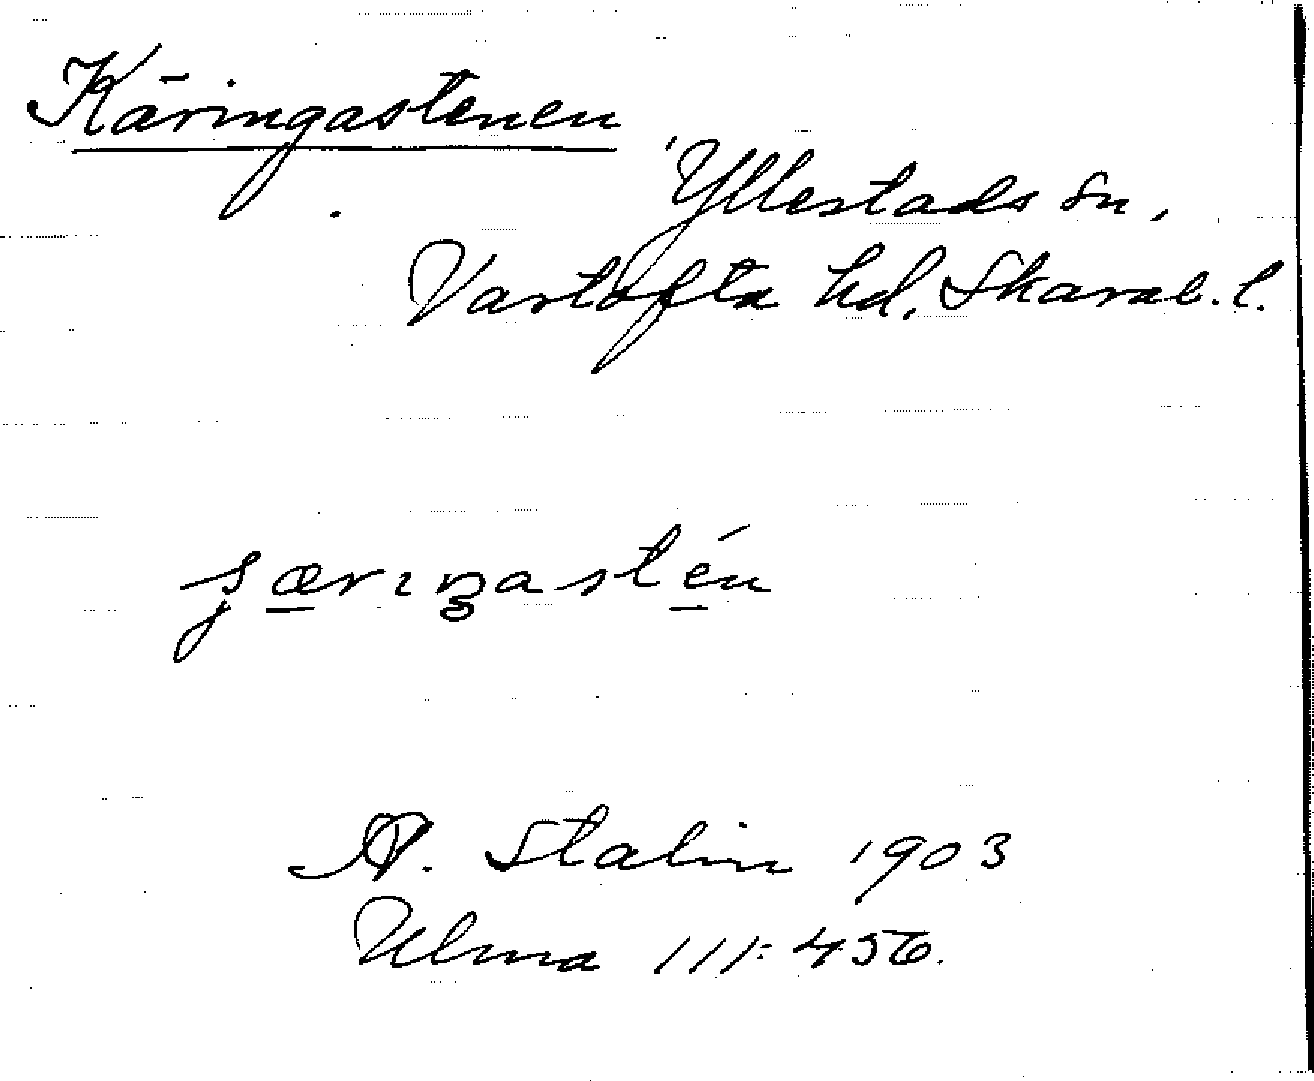 Käringastenen
Yllestads sn,
Vartofta hd, Skarab. l.
ʂærıŋastén
A. Stalin 1903
Ulma 111:456.